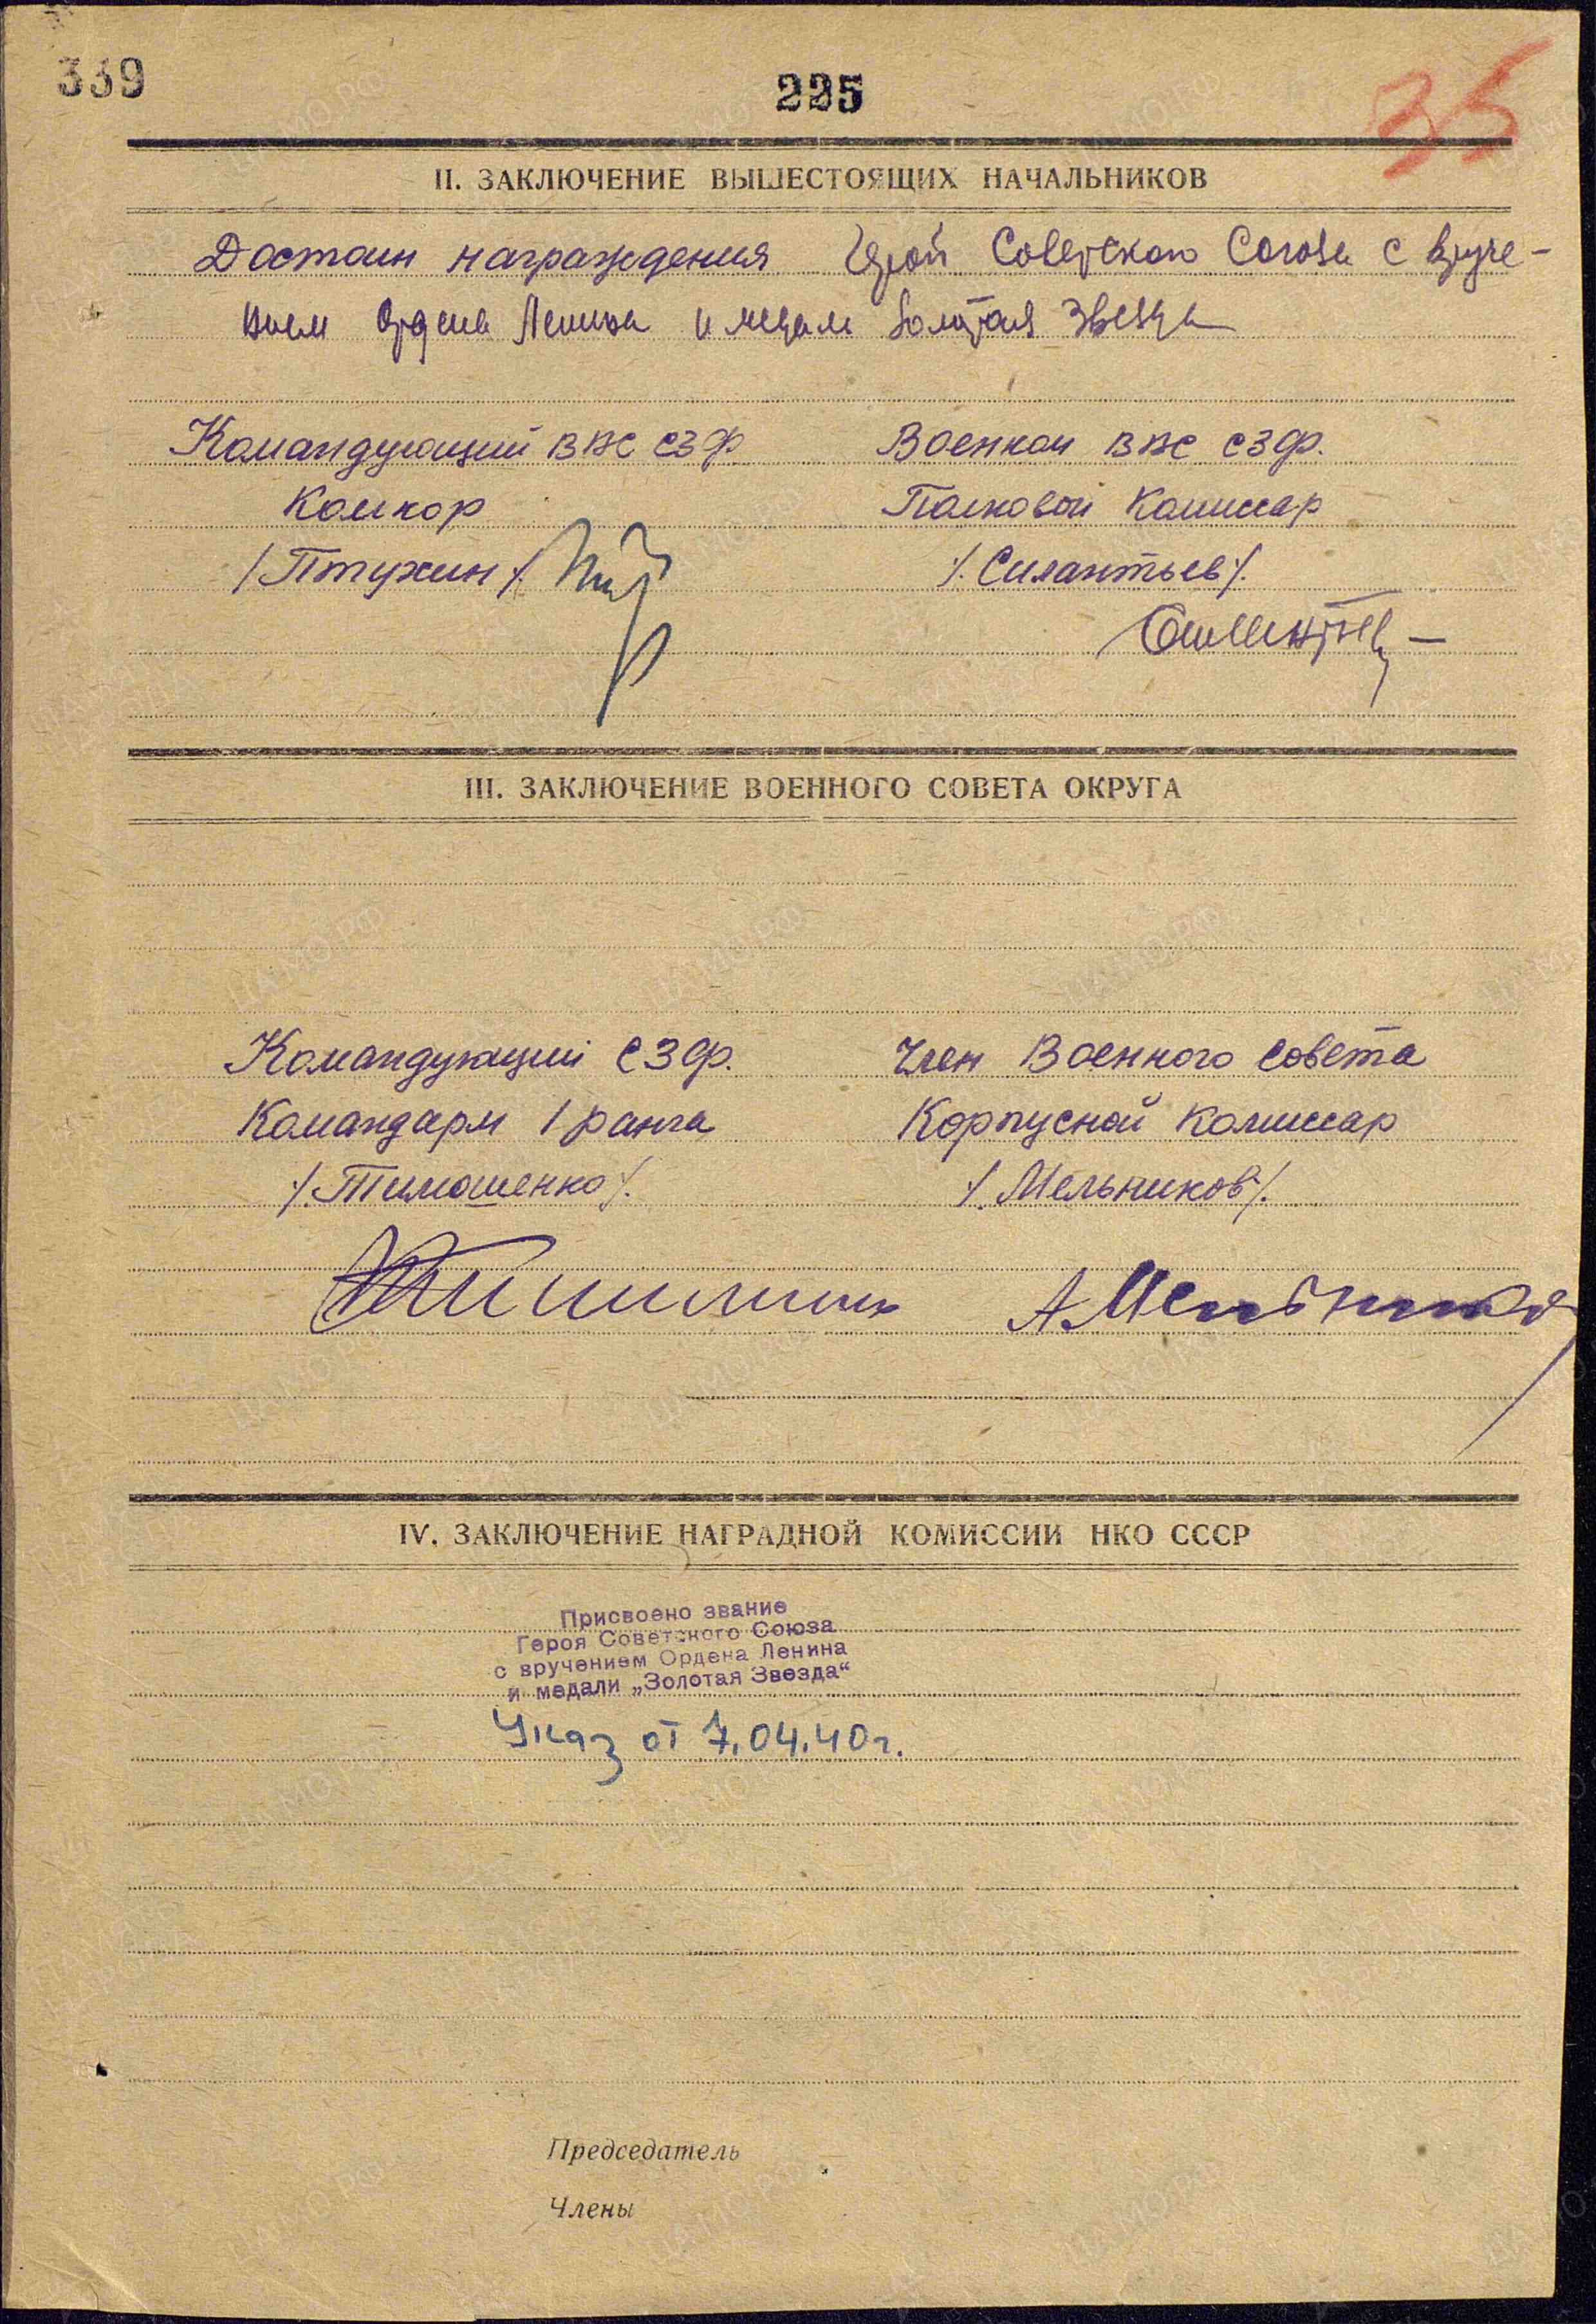 339
225
35
II. ЗАКЛЮЧЕНИЕ ВЫШЕСТОЯЩИХ НАЧАЛЬНИКОВ
Достоин награждения Герой Советского Союза с вруче-
нием Ордена Ленина и медали Золотая Звезда
Командующий ВВС СЗФ Военком ВВС СЗФ.
Комкор Полковой Комиссар
/Птухин/. /.Силантьев/.
Силантьев
III. ЗАКЛЮЧЕНИЕ ВОЕННОГО СОВЕТА ОКРУГА
Командующий СЗФ. Член Военного Совета
Командарм 1 ранга Корпусной Комиссар
/.Тимошенко/. /.Мельников/.
А Мельников
IV. ЗАКЛЮЧЕНИЕ НАГРАДНОЙ КОМИССИИ НКО СССР
Присвоено звание
Героя Советского Союза
с вручением Ордена Ленина
и медали „Золотая Звезда“
Указ от 7.04.40г.
Председатель
Члены
ЦАМО.РФ